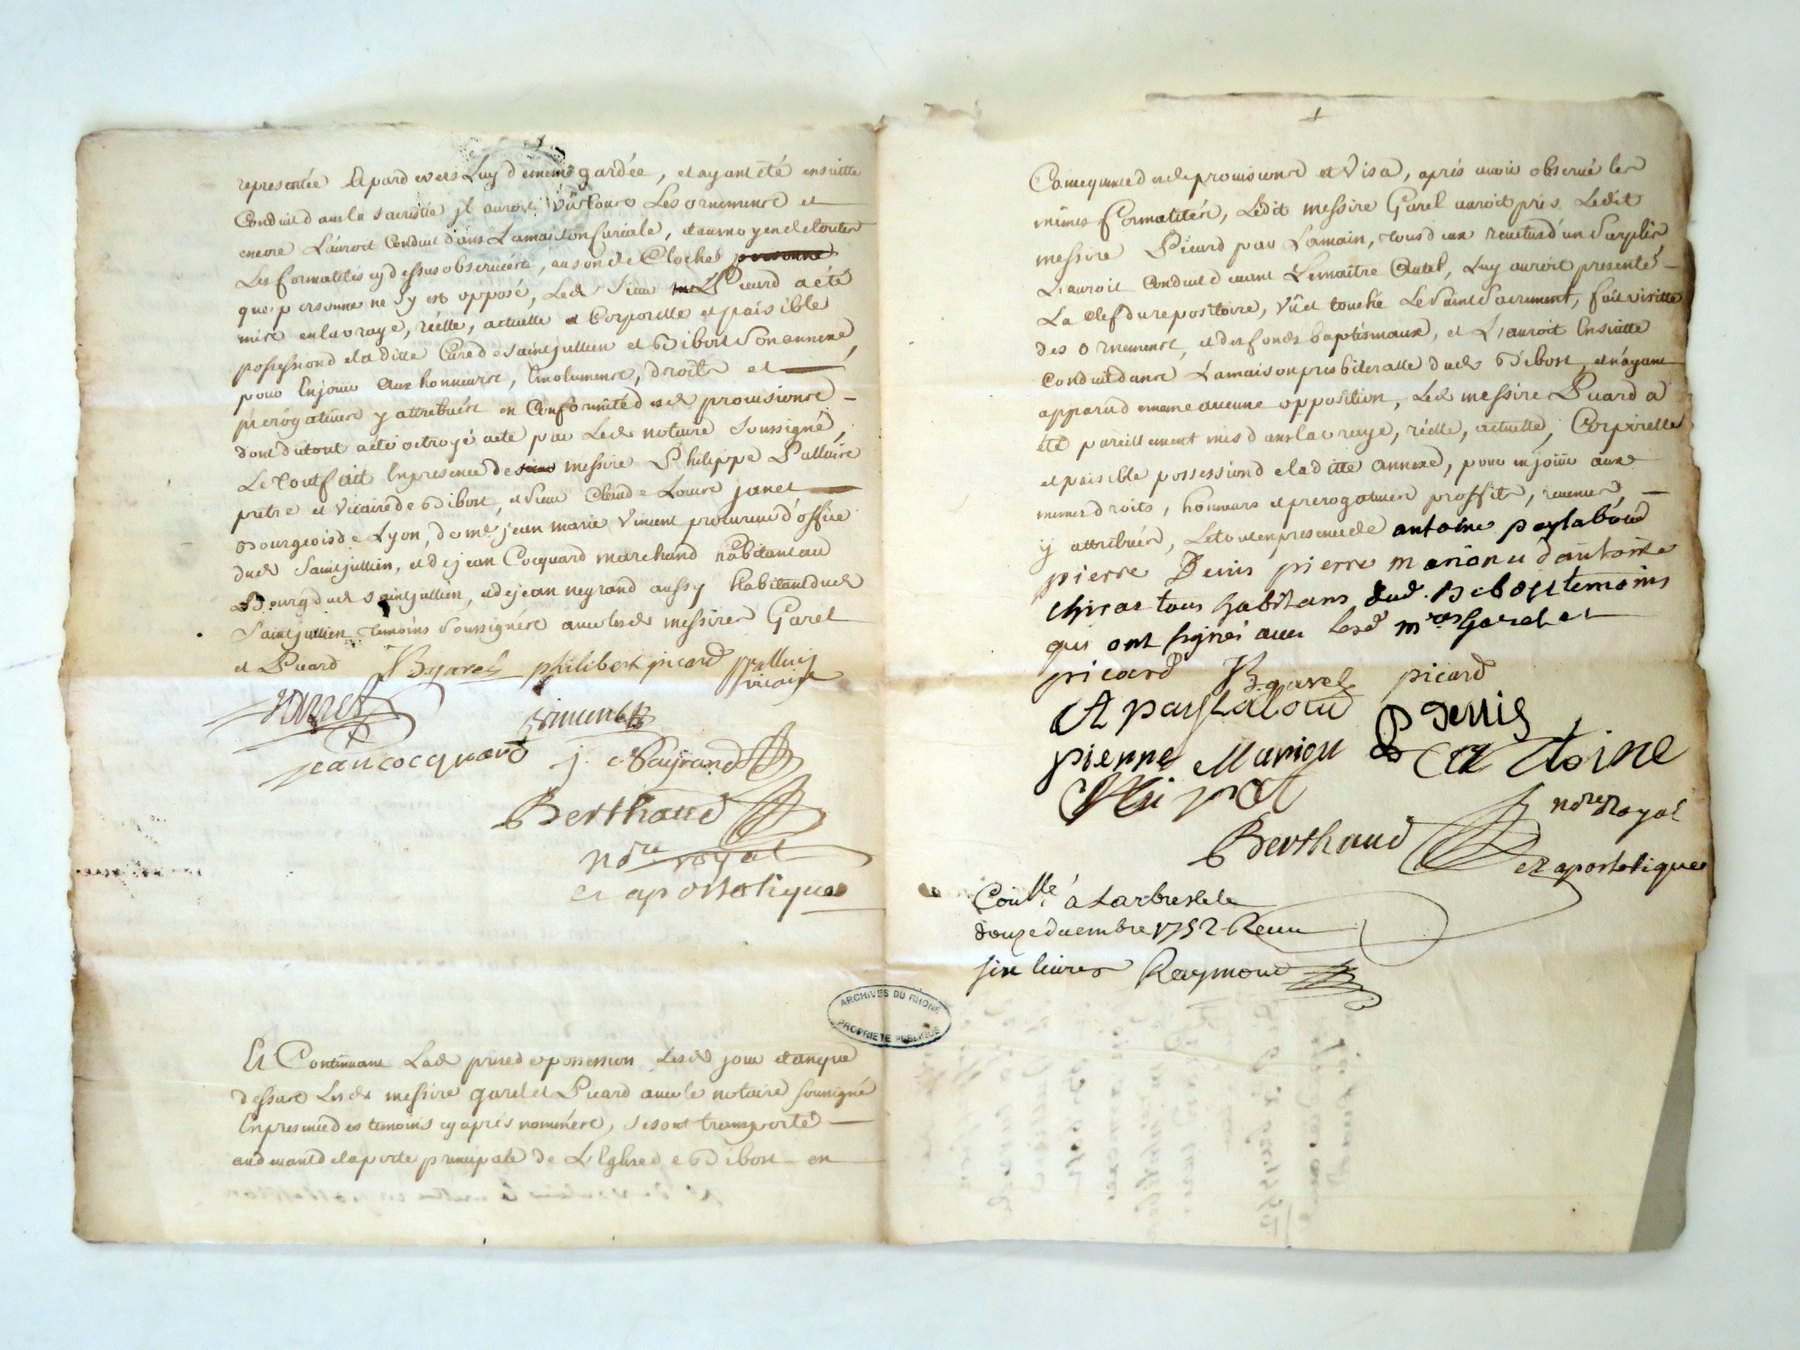 representée Et pard evers Luy demeuré gardée, et ayant été ensuitte
Conduit dans la sacristie jl auroit vû tous Les ornemens et
encore L'auroit Conduit dans La maison Curiale, et au moyen de toutes
Les formalités cy dessus observées, au son de Cloches personne
que personne ne s'y est opposé, Led. Sieur Picard a été
mis en la vraye, réelle, actuelle et Corporelle et paisible
possession de la ditte Cure de saint jullien et Bibost son annexe,
pour En jouir aux honneurs, Emolumens, droits et
prerogatives y attribués en Conformité desd. provisions
dont du tout acte octroyé acte par Led. notaire soussigné,
Le tout fait En presence de sieur messire Philippe Palluis
pretre et Vicaire de Bibost, et sieur Claude Janet
Bourgeois de Lyon, de me. jean marie Vincent procureur d'office
dud. Saint jullien, et de jean Cocquard marchand habitant au
Bourg dud. saint jullien, et de jean neyrand aussy habitant dud.
Saint jullien temoins soussignés avec lesd. messires Garel
et Picard B garel philibert picard Palluis
vicaire
Janet Vincent
jean cocquard j. Neyrand
Berthaud
nore royal
et apostolique
ARCHIVES DU RHONE
PROPRIÉTÉ PUBLIQUE
Et Continuant Lad. prise de possession Lesd. jour et an que
dessus Lesd. messire garel et Picard avec le notaire soussigné
En presence des temoins cy après nommés, se sont transporté
au devant de la porte principale de L'Eglise de Bibost en
Consequence desd. provisions et Visa, après avoir observé les
mêmes formalités, Ledit messire Garel auroit pris Ledit
messire Picard par La main, tous deux revetus d'un Surplis,
L'auroit Conduit devant Le maître Autel, Luy auroit presenté
La clef du repositoire, Vû et touché Le Saint Sacrement, fait visitte
des ornemens, et des fonds baptismaux, et L'auroit Ensuitte
Conduit dans La maison presbiteralle dud. Bibost, et n'ayant
apparu d'emême aucune opposition, Led. messire Picard a
été pareillement mis dans la vraye, réelle, actuelle, Corporelle
et paisible possession de la ditte annexe, pour en jouir aux
mêmes droits, honneurs et prerogatives proffits, revenus,
y attribués, Le tout en presence de antoine paylaboud
pierre Denis pierre marion et d'antoine
chirat tous habitans dud. Bibost temoins
qui ont signés avec lesd. mres Garel et
picard B garel picard
A paystaloud P denis
pierre Marion antoine
Chirat
Berthaud nore Royal
et apostolique
Conlle. à Larbresle le
douze decembre 1752 Recu
six livres Raymond